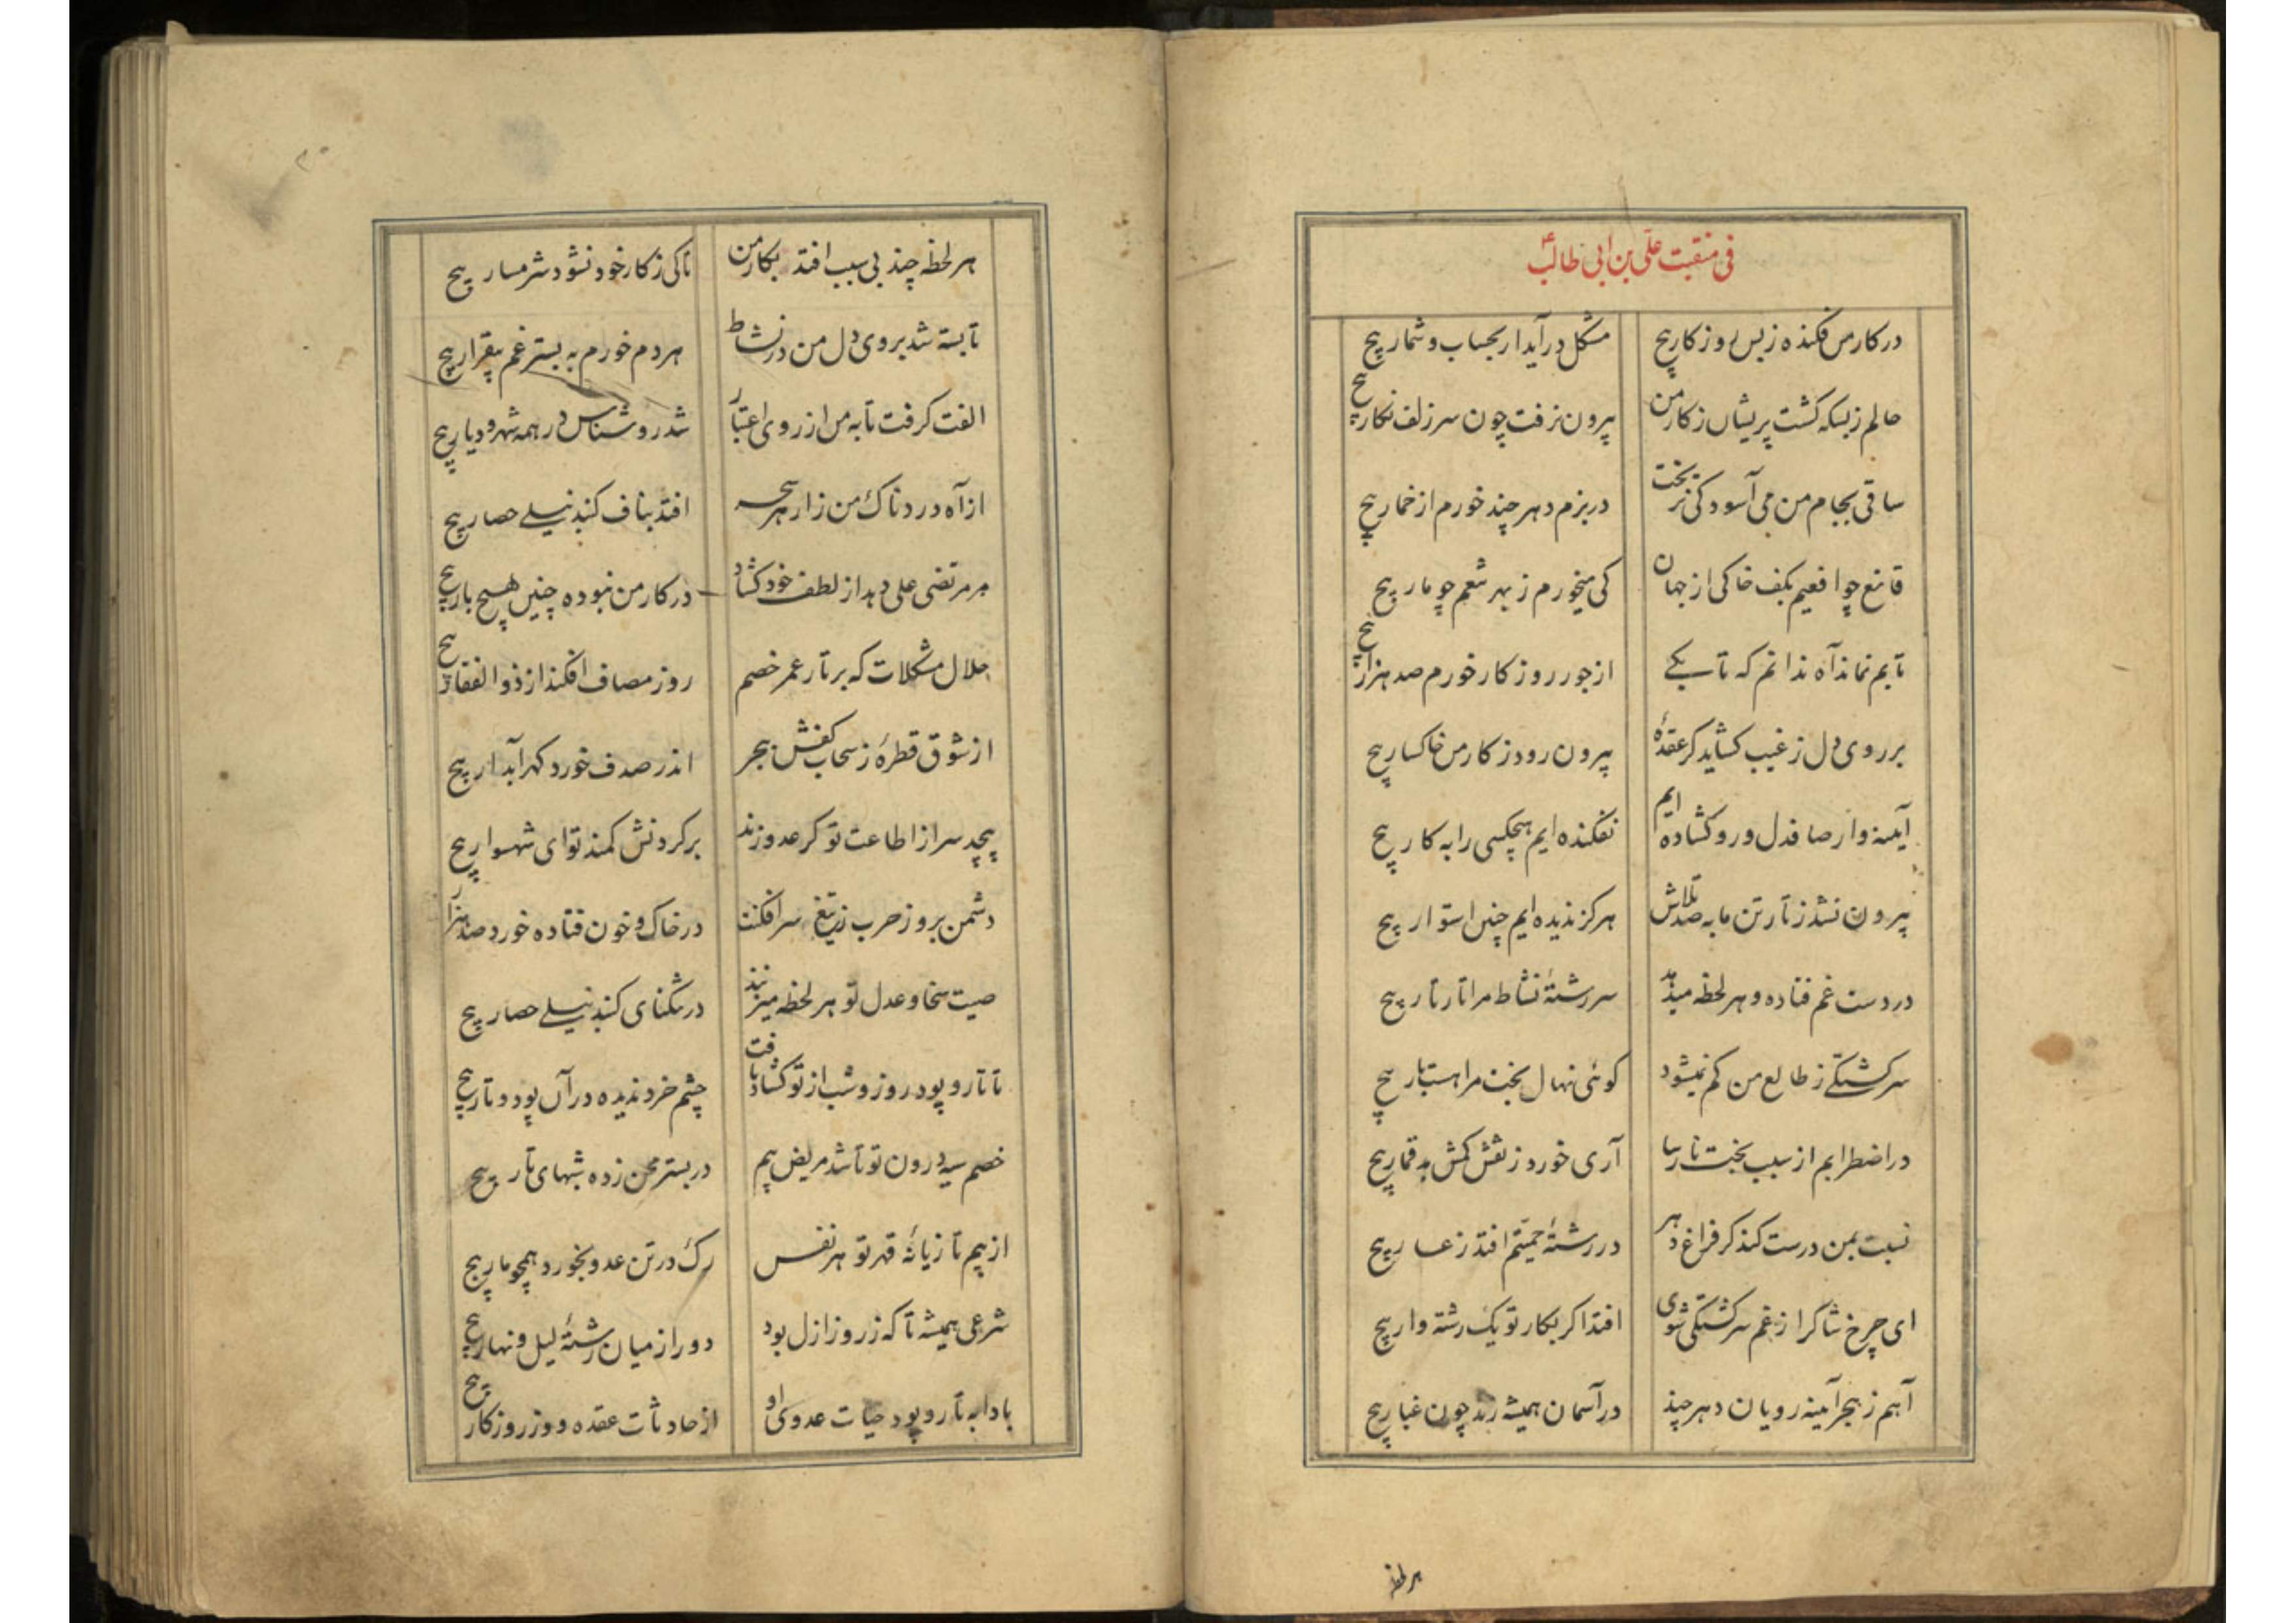 فی منقبت علی بن ابی طالب ع
در کار من فکنده ز بس روزکار پیچ مشکل در آید ار بحساب و شمار پیچ
حالم ز بسکه کشت پریشان ز کار من بیرون نرفت چون سر زلف نکار پیچ
ساقی بجام من می آسودکی نریخت در بزم دهر چند خورم از خمار پیچ
قانع چو افعیم بکف خاکی از جهان کی میخورم ز بهر شعم چو مار پیچ
تابم نماند آه ندانم که تا بکی از جور روزکار خورم صد هزار پیچ
بر روی دل ز غیب کشاید کر عقدهٔ بیرون رود ز کار من خاکسار پیچ
آیینه وار صاف دل و رو کشاده ایم نفکنده ایم هیچکسی را به کار پیچ
بیرون نشد ز تار تن ما به صد تلاش هرکز ندیده ایم چنین استوار پیچ
در دست غم فتاده و هر لحظه میدهد سر رشتهٔ نشاط مرا تار تار پیچ
سرکشتکی ز طالع من کم نمیشود کوئی نهال بخت مرا هست بار پیچ
در اضطرابم از سبب بخت نارسا آری خورد ز نقش کمش بد قمار پیچ
نسبت بمن درست کند کر فراغ دهر در رشتهٔ حمیتم افتد ز عار پیچ
ای چرخ شاکر از غم سرکشتکی شوی افتد اکر بکار تو یک رشته وار پیچ
آهم ز هجر آینه رویان دهر چند در آسمان همیشه زند چون غبار پیچ
هر لحظه
هر لحظه چند بی سبب افتد بکار من تا کی ز کار خود نشود شرمسار پیچ
تا بسته شد بروی دل من در نشاط هر دم خورم به بستر غم بیقرار پیچ
الفت کرفت تا به من از روی اعتبار شد روشناس در همه شهر و دیار پیچ
از آه دردناک من زار هر سحر افتد بناف کنبد نیلی حصار پیچ
مر مرتضی علی دهد از لطف خود کشاد در کار من نبوده چنین هیچ بار پیچ
حلال مشکلات که بر تار عمر خصم روز مصاف افکند از ذوالفقار پیچ
از شوق قطرهٔ ز سحاب کفش ببحر اندر صدف خورد کهر آبدار پیچ
پیچد سر از اطاعت تو کر عدو زند بر کردنش کمند تو ای شهسوار پیچ
دشمن بروز حرب ز تیغ سرافکنت در خاک و خون فتاده خورد صد هزار
صیت سخا و عدل تو هر لحظه میزند در تنکنای کنبد نیلی حصار پیچ
تا تار و پود روز و شب از تو کشاد یافت چشم خرد ندیده در آن پود و تار پیچ
خصم سیه درون تو تا شد مریض بیم در بستر محن زده شبهای تار پیچ
از بیم تازیانهٔ قهر تو هر نفس رک در تن عدو بخورد همچو مار پیچ
شرعی همیشه تا که ز روز ازل بود دور از میان رشتهٔ لیل و نهار پیچ
بادا به تار و پود حیات عدوی او از حادثات عقده دوز روزکار پیچ